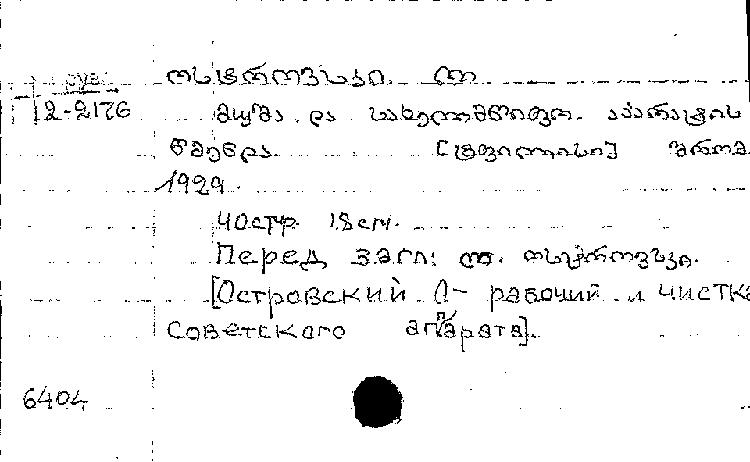 груз.
12-2176
ოსტროვსკი ო.
მუშა და სახელმწიფო აპარატის
წმენდა [ტფილისი] შრომა
1929
40стр 18см.
Перед загл: ო. ოსტროვსკი.
[Островский О- рабочий и чистка
советского аппарата].
6404